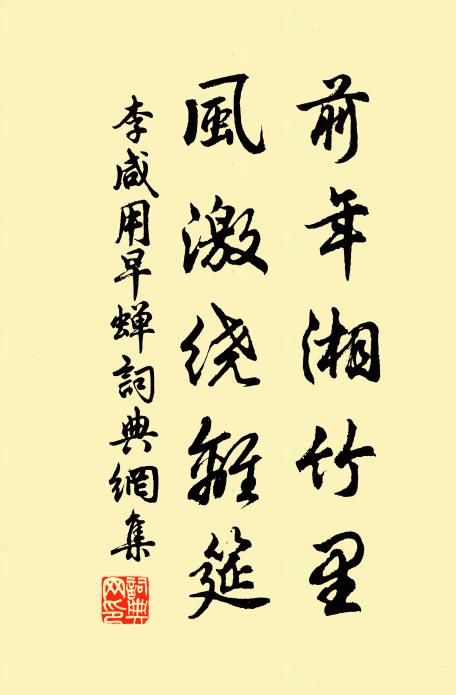 前年湘竹里
風激绕離筵
李咸用早蝉詞典網集
詞典网印